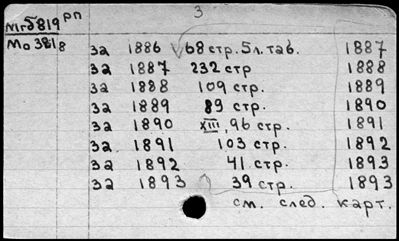 3
Мгб819 рп
Мо 3818
за 1886 68 стр. 5 л. таб. 1887
за 1887 232 стр 1888
за 1888 109 стр. 1889
за 1889 89 стр. 1890
за 1890 XIII, 96 стр. 1891
за 1891 103 стр. 1892
за 1892 41 стр. 1893
за 1893 39 стр. 1893
см. след. карт.